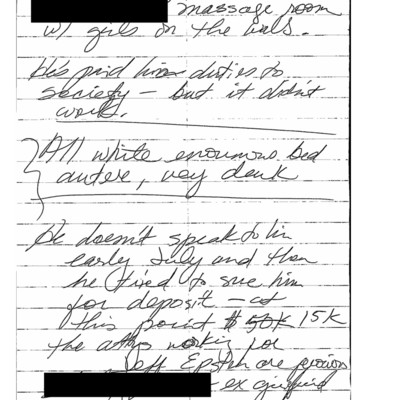 massage room
w/ girls on the walls.
He's paid his duties to
society — but it didn't
work.
All white enoumous bed
autere, vey dark
He doesn't speak to him
early July and then
he tired to sue him
for deposit — at
this point $ 50K 15K
the attys working for
Jeff Epstein are
ex